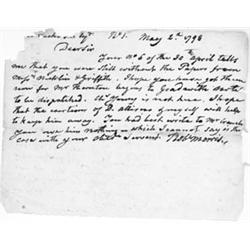 No 1. May 2d 1798
Dear Sir
Your No 6 of the 30th April tells
me that you were still without the Papers from
Messrs Nicklin & Griffith. I hope you have got them
now for Mr Thornton begins to
to be dispatched. Young is not here. I hope
that the caution of D. Allison & myself will help
to keep him away. You had best write to
You owe him nothing which I cannot say is the
case with your Obedt Servant Robt Morris